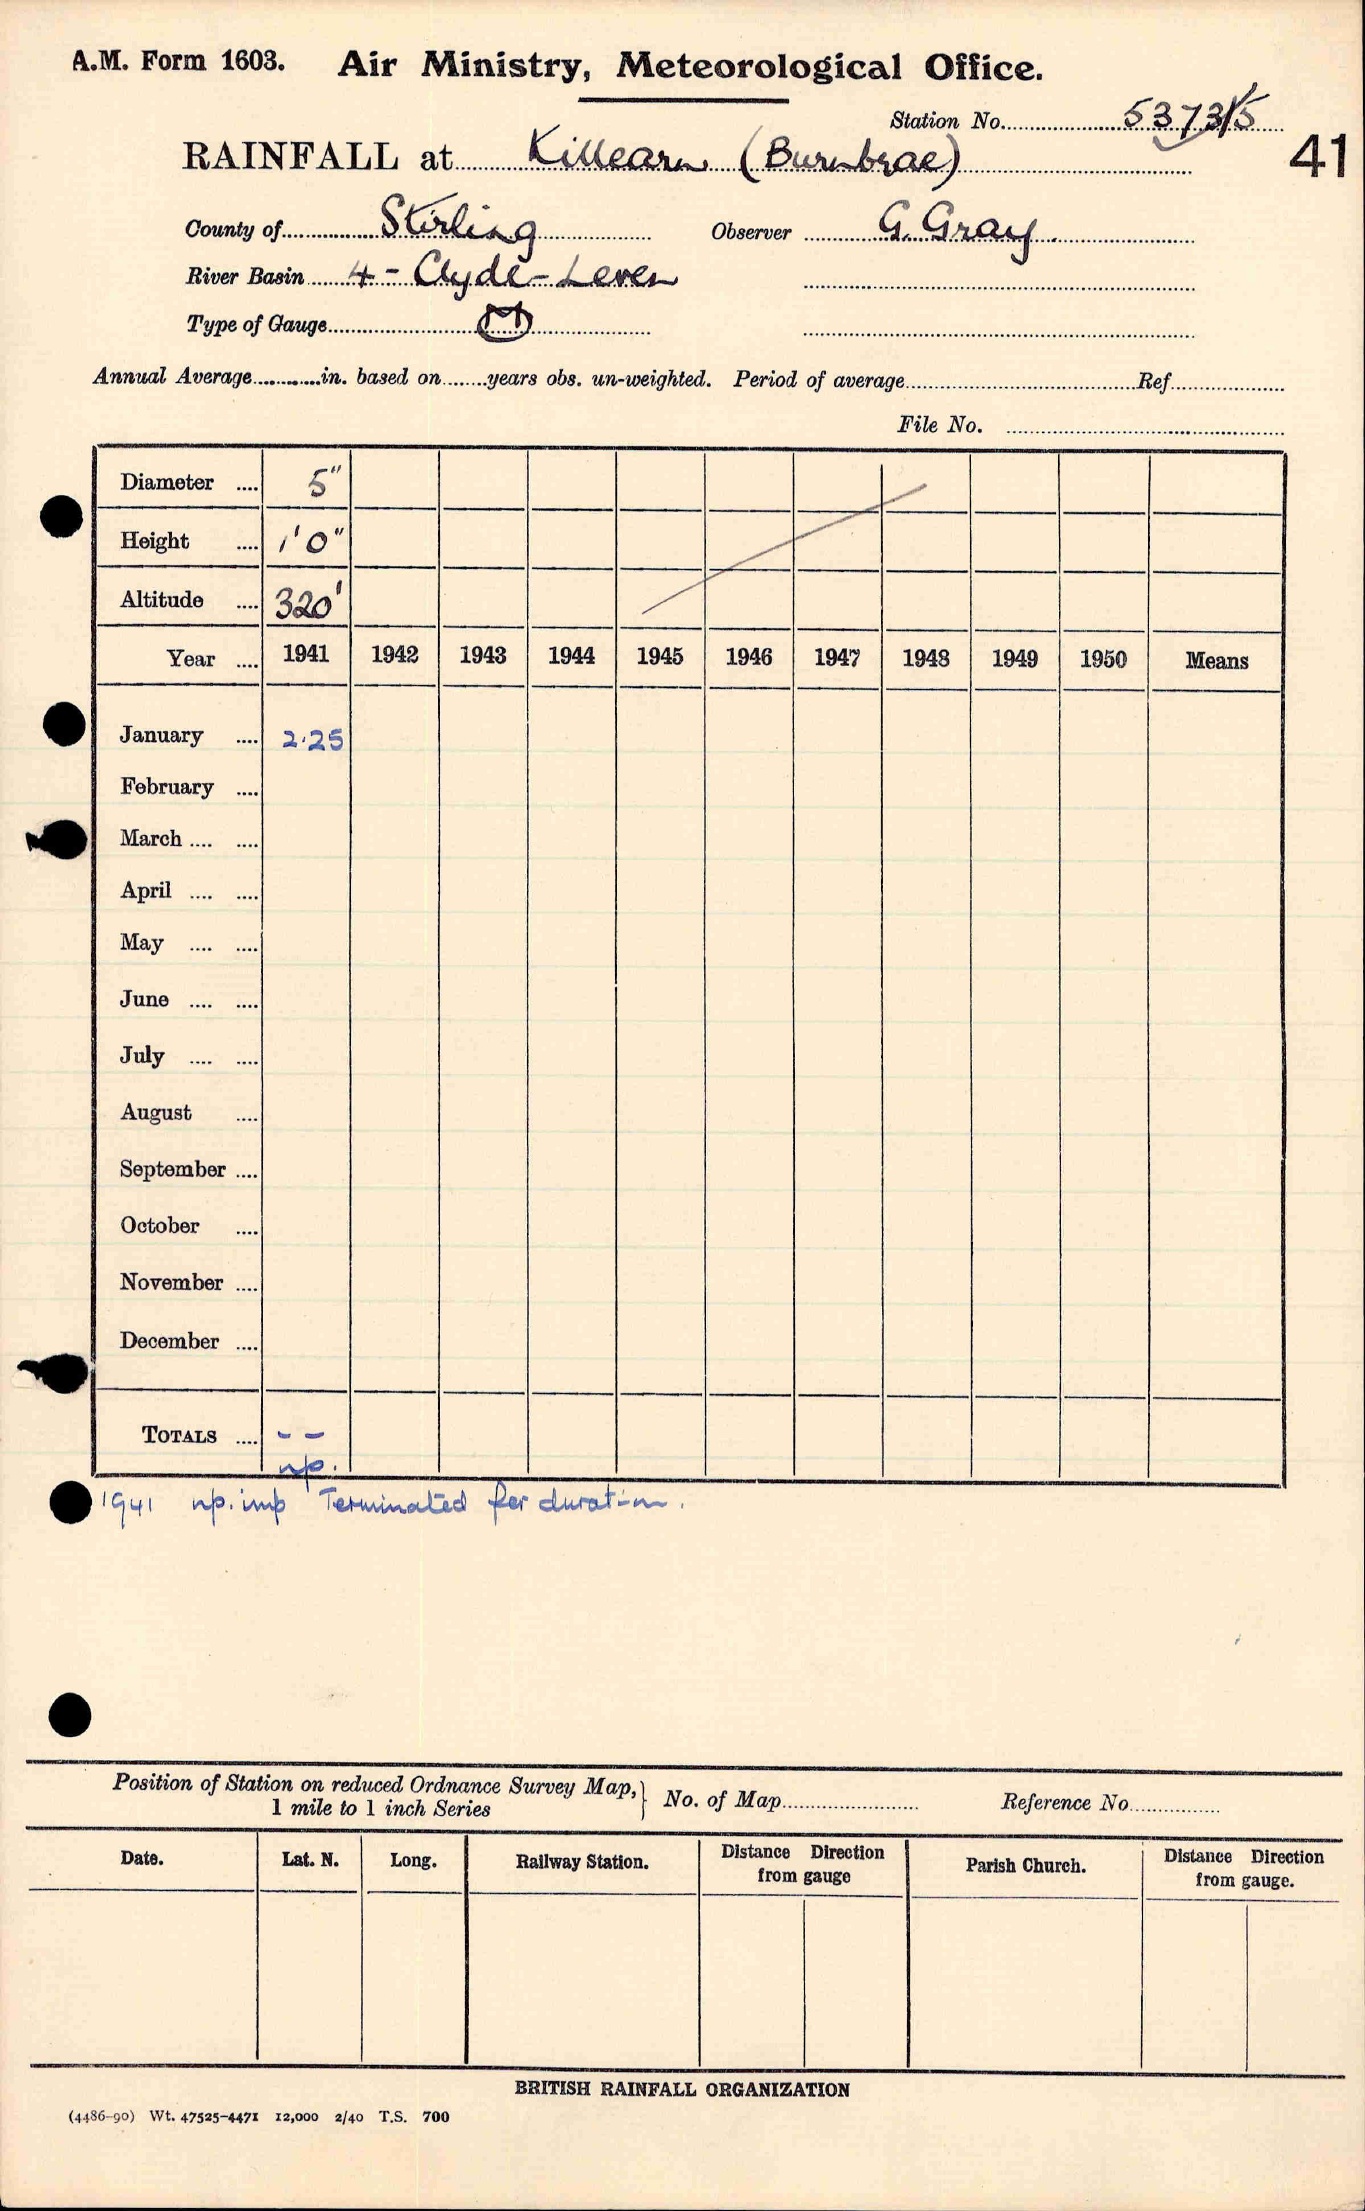 A.M. Form 1603. Air Ministry, Meteorological Office.
Station No. 5373/5
41
RAINFALL at Killearn (Burnbrae)
County of Stirling Observer G. Gray.
River Basin 4 - Clyde - Leven
Type of Gauge M
Annual Average in. based on years obs. un-weighted. Period of average Ref
File No.
Diameter 5"
Height 1'0"
Altitude 320'
Year 1941 1942 1943 1944 1945 1946 1947 1948 1949 1950 Means
January 2.25
February
March
April
May
June
July
August
September
October
November
December
TOTALS - -
np.
1941 np. imp Terminated for duration.
Position of Station on reduced Ordnance Survey Map, } No. of Map Reference No.
1 mile to 1 inch Series
Date. Lat. N. Long. Railway Station. Distance Direction from gauge Parish Church. Distance Direction from gauge.
BRITISH RAINFALL ORGANIZATION
(4486-90) Wt. 47525-4471 12,000 2/40 T.S. 700